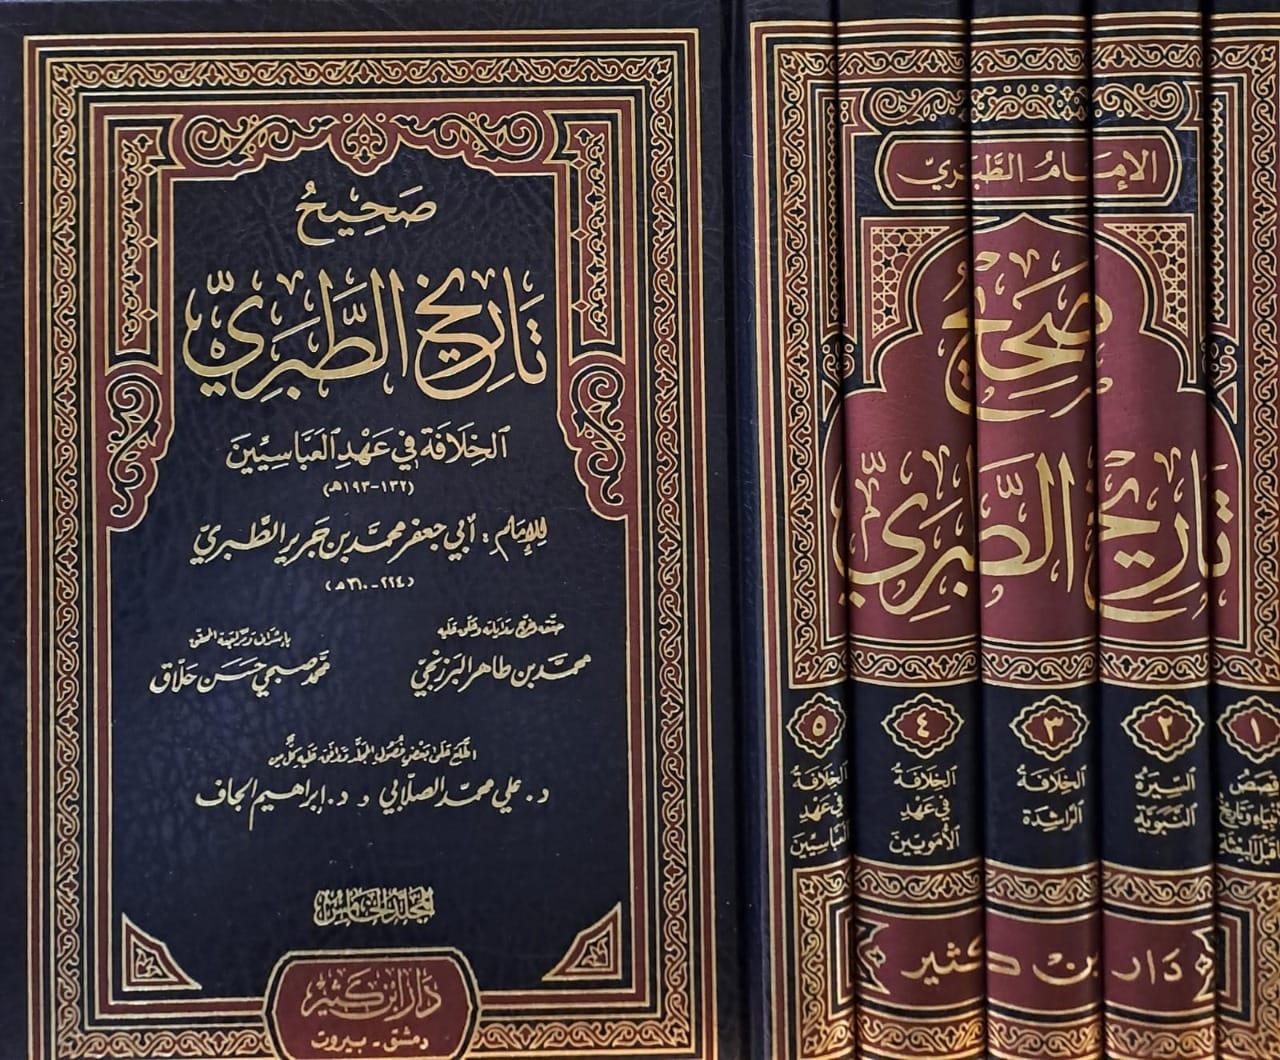 صَحِيحُ
تَارِيخِ الطَّبَرِيِّ
الخِلَافَةُ فِي عَهْدِ العَبَّاسِيِّينَ
(١٣٢-١٩٣هـ)
للإمام: أبي جعفر محمد بن جرير الطبري
(٢٢٤-٣١٠هـ)
حققه وخرج رواياته وعلق عليه
محمد بن طاهر البرزنجي
بإشراف ومراجعة المحقق
محمد صبحي حسن حلاق
اطلع على بعض فصول المجلد ووافق عليه كل من
د. علي محمد الصلابي و د. إبراهيم الجاف
المجلد الخامس
دار ابن كثير
دمشق - بيروت
الإمَامُ الطَّبَرِيّ
صَحِيحُ
تَارِيخِ الطَّبَرِيِّ
١
قصص
وتاريخ
قبل البعثة
٢
السيرة
النبوية
٣
الخلافة
الراشدة
٤
الخلافة
في عهد
الأمويين
٥
الخلافة
في عهد
العباسيين
دار بن كثير